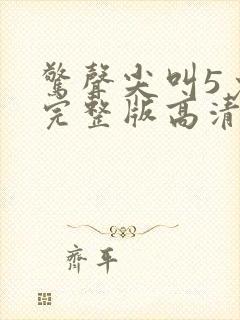 驚聲尖叫5
完整版高清
齊平